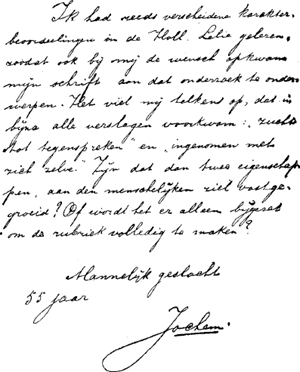 Ik had reeds verscheidene karakter-
beoordeelingen in de Holl. Lelie gelezen,
zoodat ook bij mij de wensch opkwam
mijn schrift aan dat onderzoek te onder
werpen. Het viel mij telkens op, dat in
bijna alle verslagen voorkwam: "zucht
tot tegenspreken" en "ingenomen met
zich zelve". Zijn dat dan twee eigenschap
pen, aan den menschelijken ziel vastge-
groeid? Of wordt het er alleen bijgezet
om de rubriek volledig te maken?
Mannelijk geslacht
55 jaar
Jochem.